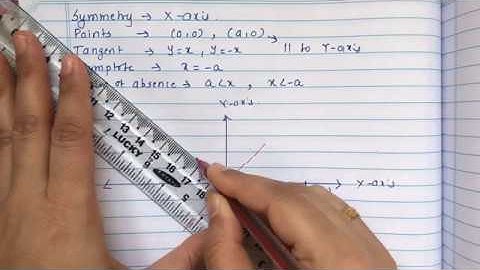 Symmetry → X-axis
Points → (0,0), (a,0)
Tangent → Y=x, Y=-x → || to Y-axis
x = -a
of absence → a<x, x<-a
Y-axis
X-axis
LUCKY
12 13 14 15 16 17 18